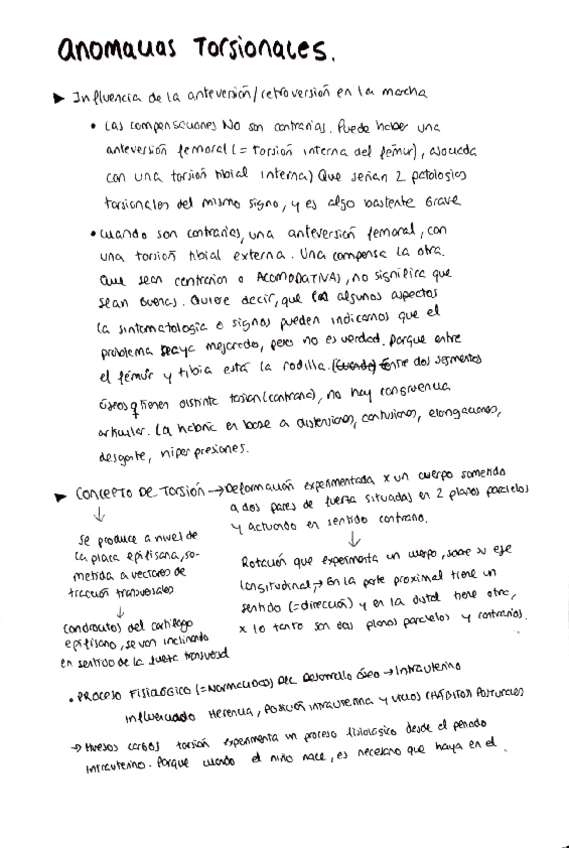 Anomalias Torsionales.
► Influencia de la anteversión/retroversión en la marcha
• Las compensaciones NO son contrarias. Puede haber una
anteversión femoral (= torsión interna del fémur), asociada
con una torsión tibial interna) Que serían 2 patologías
torsionales del mismo signo, y es algo bastante grave
• Cuando son contrarias, una anteversión femoral, con
una torsión tibial externa. Una compensa la otra.
Que sean contrarias o ACOMODATIVAS, no significa que
sean buenas. Quiere decir, que algunos aspectos
la sintomatología o signos pueden indicarnos que el
problema haya mejorado, pero no es verdad. Porque entre
el fémur y tibia está la rodilla. Entre dos segmentos
óseos q tienen distinta torsión (contraria), no hay congruencia
articular. La habrá en base a distensiones, contusiones, elongaciones,
desgaste, hiper presiones.
► CONCEPTO DE TORSIÓN → Deformación experimentada x un cuerpo sometido
a dos pares de fuerza situadas en 2 planos paralelos
y actuando en sentido contrario.
↓
Se produce a nivel de
la placa epifisaria, so-
metida a vectores de
tracción transversales
↓
Condrocitos del cartílago
epifisario, se van inclinando
en sentido de la fuerza transversal
↓
Rotación que experimenta un cuerpo, sobre su eje
longitudinal, → En la parte proximal tiene un
sentido (=dirección) y en la distal tiene otra,
x lo tanto son dos planos paralelos y contrarios.
• PROCESO FISIOLÓGICO (= NORMALIDAD) DEL Desarrollo óseo → Intrauterino
Influenciado Herencia, Posición intrauterina y vicios (HÁBITOS) Posturales
→ Huesos largos torsión experimenta un proceso fisiológico desde el periodo
intrauterino. Porque cuando el niño nace, es necesario que haya en el